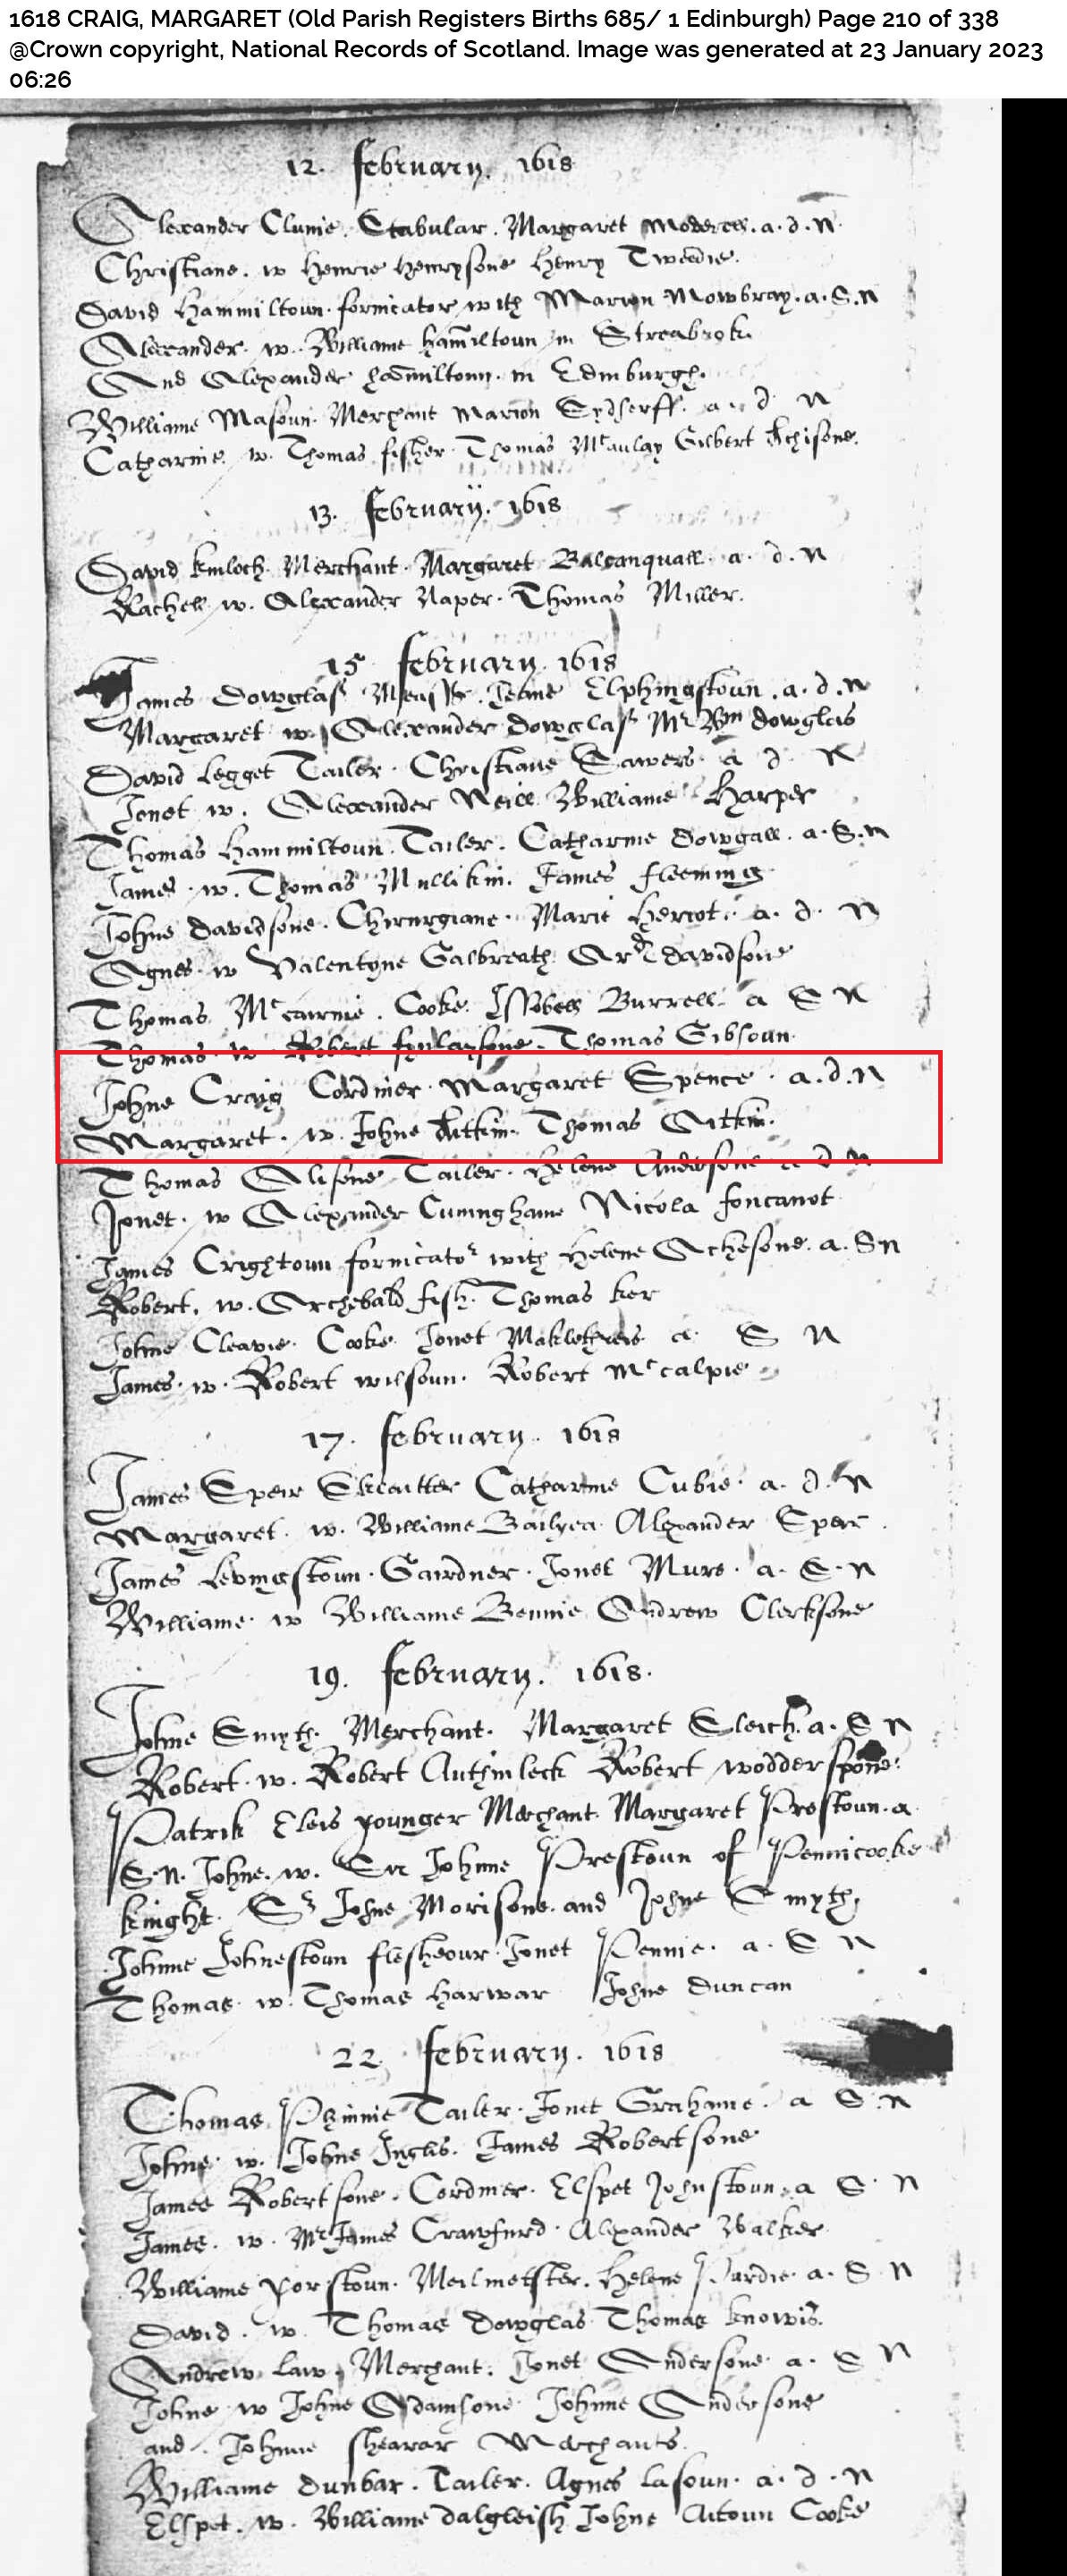 1618 CRAIG, MARGARET (Old Parish Registers Births 685/ 1 Edinburgh) Page 210 of 338
@Crown copyright, National Records of Scotland. Image was generated at 23 January 2023
06:26
12. february. 1618
Alexander Clunie. Stabular. Margaret a. d. N.
Christiane. w Henrie Henrysone Henry Tweedie.
David Hammiltoun. fornicator with Marion Mowbray. a. S. N
Alexander. w. Williame Hamiltoun in
And Alexander Hammiltoun. in Edinburgh.
Williame Masoun. Merchant Marion Sydserff. a. d. N
Catharine. w. Thomas fisher. Thomas Mcaulay Gilbert Achisone.
13. february. 1618
David Kinloch. Merchant. Margaret Balcanquall. a. d. N
Rachell. w. Alexander Naper. Thomas Miller.
15 february. 1618
James Dowglas Jeane Elphingstoun. a. d. N
Margaret w. Alexander Dowglas Mr Wm Dowglas
David Legget Tailer. Christiane Sawers. a d. N
Jonet w. Alexander Neill Williame Harper
Thomas Hammiltoun. Tailer. Catharine Dowgall. a. S. N
James. w. Thomas Mullikin. James fleeming
Johne Davidsone. Chirurgiane. Marie Heriot. a. d. N
Agnes. w Valentyne Galbreath. Davidsone
Thomas Mccairnie. Cooke. Issobell Burrell. a S N
Thomas. w. Robert finlaysone. Thomas Gibsoun.
Johne Craig Cordiner. Margaret Spence. a. d. N
Margaret. w. Johne Aitkin. Thomas Aitkin.
Thomas Alisone Tailer. Helene Andersone a d N
Jonet. w Alexander Cuninghame Nicola foncanot
James Crightoun fornicator with Helene Achesone. a. S N
Robert. w. Archebald fish. Thomas Ker
Johne Cleavie. Cooke. Jonet a. S N
James. w. Robert Wilsoun. Robert Mccalpie
17. february. 1618
James Speir Skleatter Catharine Cubie. a. d. N
Margaret. w. Williame Bailyea Alexander Speir.
James Levingstoun. Gairdner. Jonet Mure. a. S. N
Williame. w Williame Bennie Andrew Clerksone
19. february. 1618.
Johne Smyth. Merchant. Margaret Sleich. a. S N
Robert. w. Robert Authinleck Robert Wodderspone.
Patrik Eleis younger Merchant. Margaret Prestoun. a
S. N. Johne. w. Sir Johnne Prestoun of Pennicooke
Knight. Sr Johne Morisone. and Johne Smyth.
Johnne Johnestoun flesheour. Jonet Pennie. a. S N
Thomas. w. Thomas Harwar Johne Duncan
22. february. 1618
Thomas Phinnie Tailer. Jonet Grahame. a S. N
Johne. w. Johne Inglis. James Robertsone
James Robertsone. Cordiner. Elspet Johnstoun. a S. N
James. w. Mr James Crawfurd. Alexander Walker
Williame Meilmetster. Helene Purdie. a. S N
David. w. Thomas Dowglas Thomas Knowis.
Andrew Law. Merchant. Jonet Andersone. a. S N
Johne w Johne Adamsone. Johnne Andersone
and. Johnne Shearar Merchants.
Williame Dunbar. Tailer. Agnes Lasoun. a. d. N
Elspet. w. Williame Dalgleish Johne Aitoun Cooke